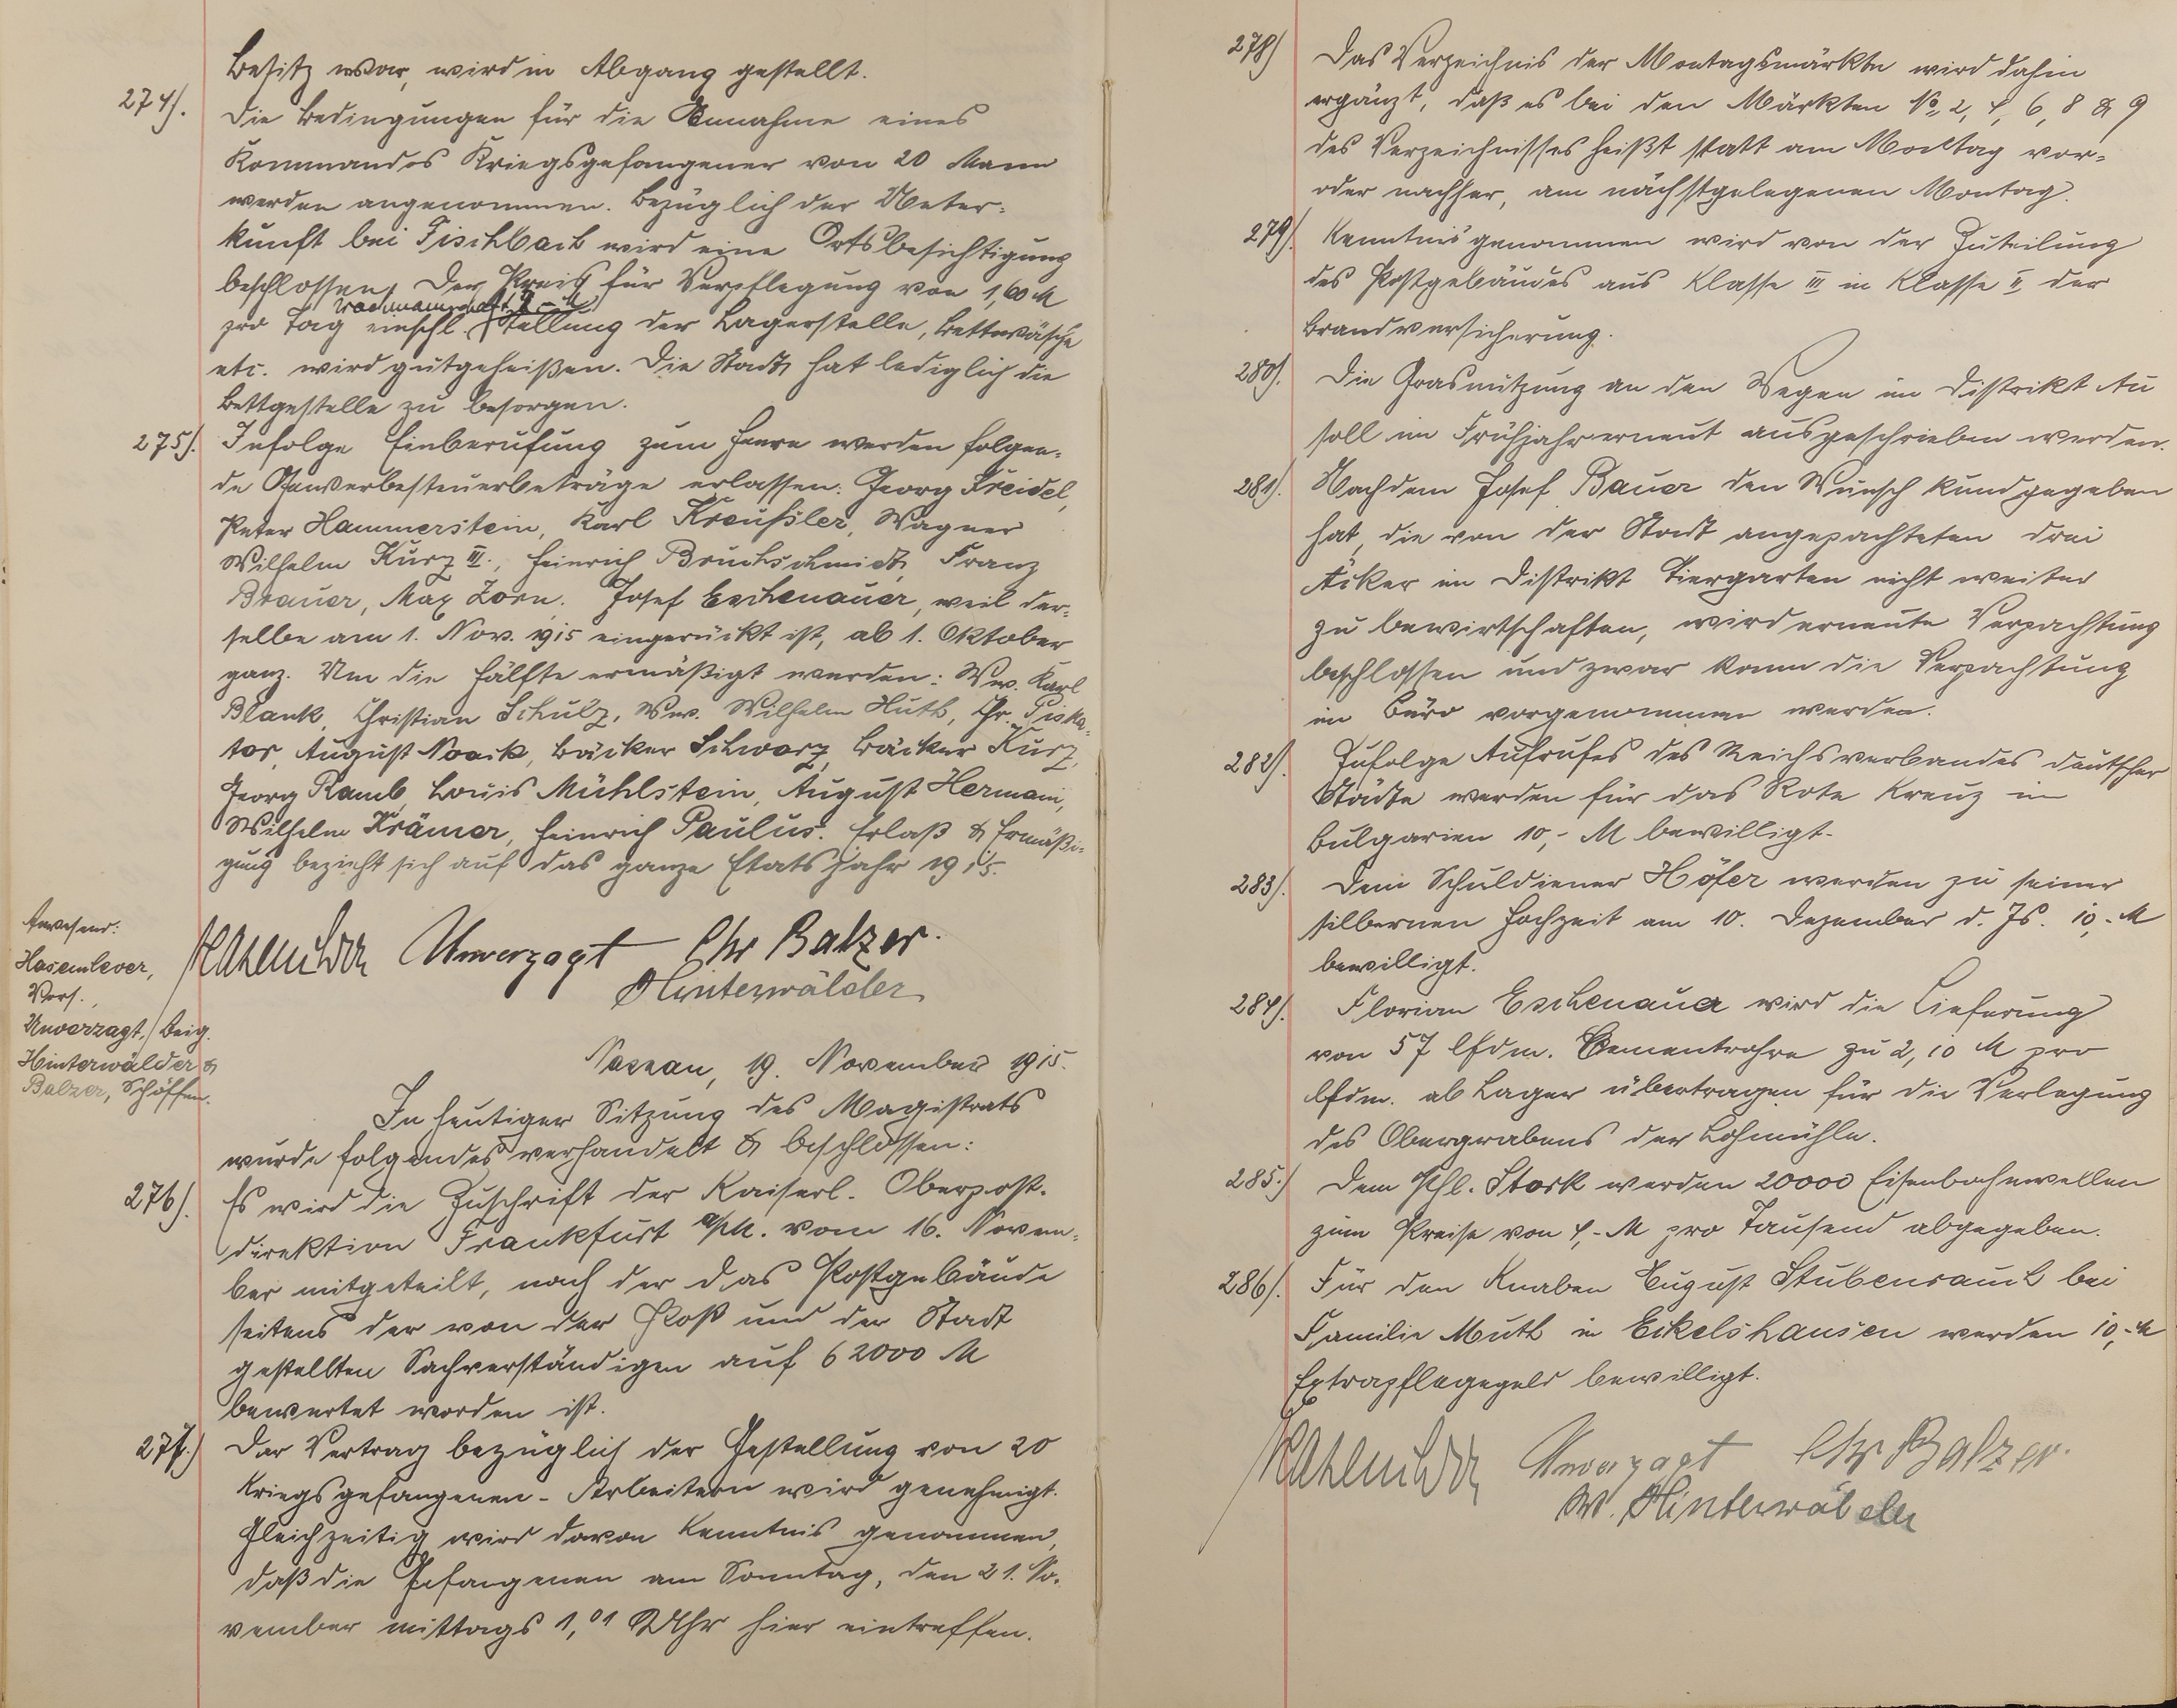 Besitz war, wird in Abgang gestellt.
274). Die Bedingungen für die Annahme eines
Kommandos Kriegsgefangener von 20 Mann
werden angenommen. Bezüglich der Unter-
kunft bei Fischbach wird eine Ortsbesichtigung
beschlossen. Der Preis für Verpflegung von 1,60 M
Wachmannschaft 2 - M
pro Tag einschl. Stellung der Lagerstelle, Bettwäsche
etc. wird gutgeheißen. Die Stadt hat lediglich die
Bettgestelle zu besorgen.
275). Infolge Einberufung zum Heere werden folgen-
de Gewerbesteuerbeträge erlassen: Georg Kreidel,
Peter Hammerstein, Karl Kreußler, Wagner
Wilhelm Kurz III., Heinrich Bruchschmidt, Franz
Brauer, Max Zorn. Josef Eschenauer, weil der-
selbe am 1. Nov. 1915 eingerückt ist, ab 1. Oktober
ganz. Um die Hälfte ermäßigt werden: Ww. Karl
Blank, Christian Schulz, Ww. Wilhelm Huth, Chr. Piska-
tor, August Noack, Bäcker Schwarz, Bäcker Kurz,
Georg Ramb, Louis Mühlstein, August Hermani,
Wilhelm Krämer, Heinrich Paulus. Erlaß & Ermäßi-
gung bezieht sich auf das ganze Etatsjahr 1915.
Hasenclever Unverzagt Chr Balzer.
Hinterwälder
Anwesend:
Hasenclever,
Vors.,
Unverzagt, Beig.
Hinterwälder &
Balzer, Schöffen.
Nassau, 19. November 1915.
In heutiger Sitzung des Magistrats
wurde folgendes verhandelt & beschlossen:
276). Es wird die Zuschrift der Kaiserl. Oberpost-
direktion Frankfurt a/M. vom 16. Novem-
ber mitgeteilt, nach der das Postgebäude
seitens der von der Post und der Stadt
gestellten Sachverständigen auf 62000 M
bewertet worden ist.
277.) Der Vertrag bezüglich der Gestellung von 20
Kriegsgefangenen-Arbeitern wird genehmigt.
Gleichzeitig wird davon Kenntnis genommen,
daß die Gefangenen am Sonntag, den 21. No-
vember mittags 1,01 Uhr hier eintreffen.
278) Das Verzeichnis der Montagsmärkte wird dahin
ergänzt, daß es bei den Märkten No. 2, 4, 6, 8 & 9
des Verzeichnisses heißt statt am Montag vor-
oder nachher, am nächstgelegenen Montag.
279). Kenntnis genommen wird von der Zuteilung
des Postgebäudes aus Klasse III in Klasse II der
Brandversicherung.
280). Die Grasnutzung an den Wegen im Distrikt Au
soll im Frühjahr erneut ausgeschrieben werden.
281). Nachdem Josef Bauer den Wunsch kundgegeben
hat, die von der Stadt angepachteten drei
Äcker im Distrikt Tiergarten nicht weiter
zu bewirtschaften, wird erneute Verpachtung
beschlossen und zwar kann die Verpachtung
im Büro vorgenommen werden.
282). Zufolge Aufrufes des Reichsverbandes deutscher
Städte werden für das Rote Kreuz in
Bulgarien 10,- M bewilligt.
283). Dem Schuldiener Höfer werden zu seiner
silbernen Hochzeit am 10. Dezember d. Js. 10,- M
bewilligt.
284). Florian Eschenauer wird die Lieferung
von 57 lfdm. Cementrohre zu 2,10 M pro
lfdm. ab Lager übertragen für die Verlegung
des Obergrabens der Lohmühle.
285.) Dem Phl. Stork werden 20000 Eisenbahnwellen
zum Preise von 4,- M pro Tausend abgegeben.
286). Für den Knaben August Stubenrauch bei
Familie Muth in Eikelshausen werden 10,- M
Extrapflegegeld bewilligt.
Hasenclever Unverzagt Chr Balzer.
W. Hinterwälder